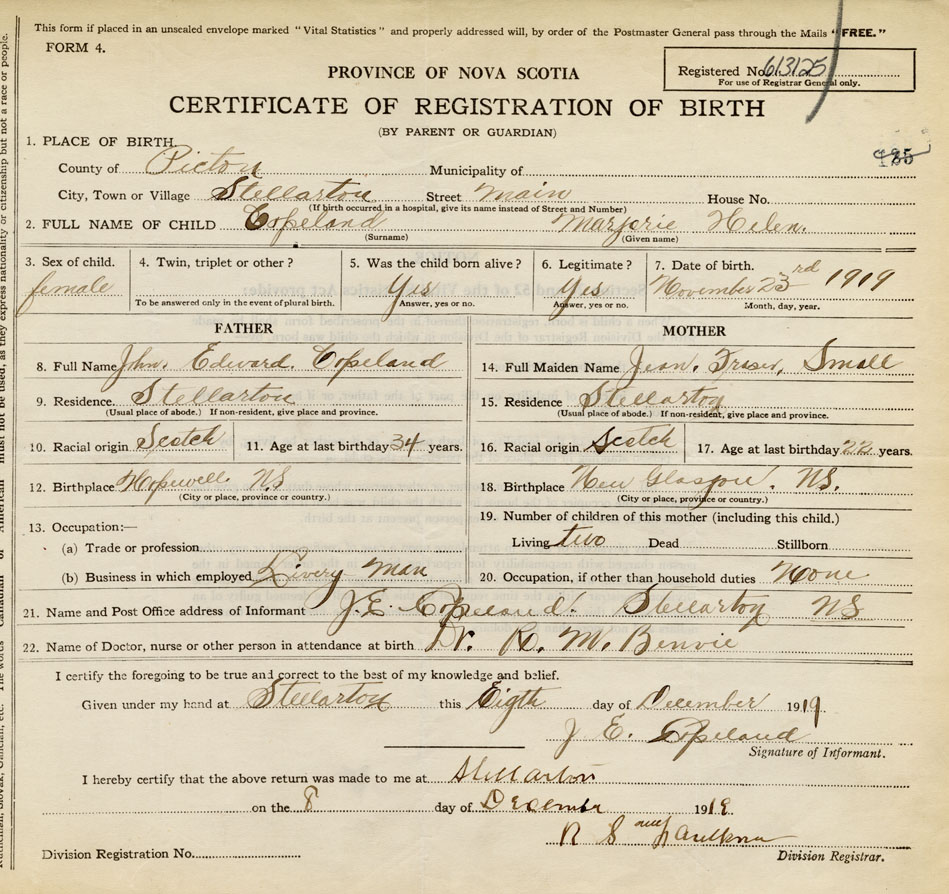 This form if placed in an unsealed envelope marked "Vital Statistics" and properly addressed will, by order of the Postmaster General pass through the Mails "FREE."
FORM 4.
PROVINCE OF NOVA SCOTIA
Registered No. 613125
For use of Registrar General only.
CERTIFICATE OF REGISTRATION OF BIRTH
(BY PARENT OR GUARDIAN)
1. PLACE OF BIRTH.
County of Picton Municipality of
City, Town or Village Stellarton Street Main House No.
(If birth occurred in a hospital, give its name instead of Street and Number)
2. FULL NAME OF CHILD Copeland Marjorie Helen.
(Surname) (Given name)
3. Sex of child. 4. Twin, triplet or other? 5. Was the child born alive? 6. Legitimate? 7. Date of birth.
female Yes Yes November 23rd 1919
To be answered only in the event of plural birth. Answer, yes or no. Answer, yes or no. Month, day, year.
FATHER MOTHER
8. Full Name John. Edward. Copeland 14. Full Maiden Name Jean. Fraser, Small
9. Residence. Stellarton 15. Residence Stellarton
(Usual place of abode.) If non-resident, give place and province. (Usual place of abode.) If non-resident, give place and province.
10. Racial origin Scotch 11. Age at last birthday 34 years. 16. Racial origin Scotch 17. Age at last birthday 22 years.
12. Birthplace Hopewell NS 18. Birthplace New Glasgow. NS.
(City or place, province or country.) (City or place, province or country.)
13. Occupation:— 19. Number of children of this mother (including this child.)
(a) Trade or profession Living two Dead Stillborn
(b) Business in which employed Livery Man 20. Occupation, if other than household duties None
21. Name and Post Office address of Informant J.E. Copeland. Stellarton NS
22. Name of Doctor, nurse or other person in attendance at birth Dr. H. M. Benvie
I certify the foregoing to be true and correct to the best of my knowledge and belief.
Given under my hand at Stellarton this Eigth day of December 1919.
J E. Copeland
Signature of Informant.
I hereby certify that the above return was made to me at Stellarton
on the 8 day of December 1919
R S
Division Registration No. Division Registrar.